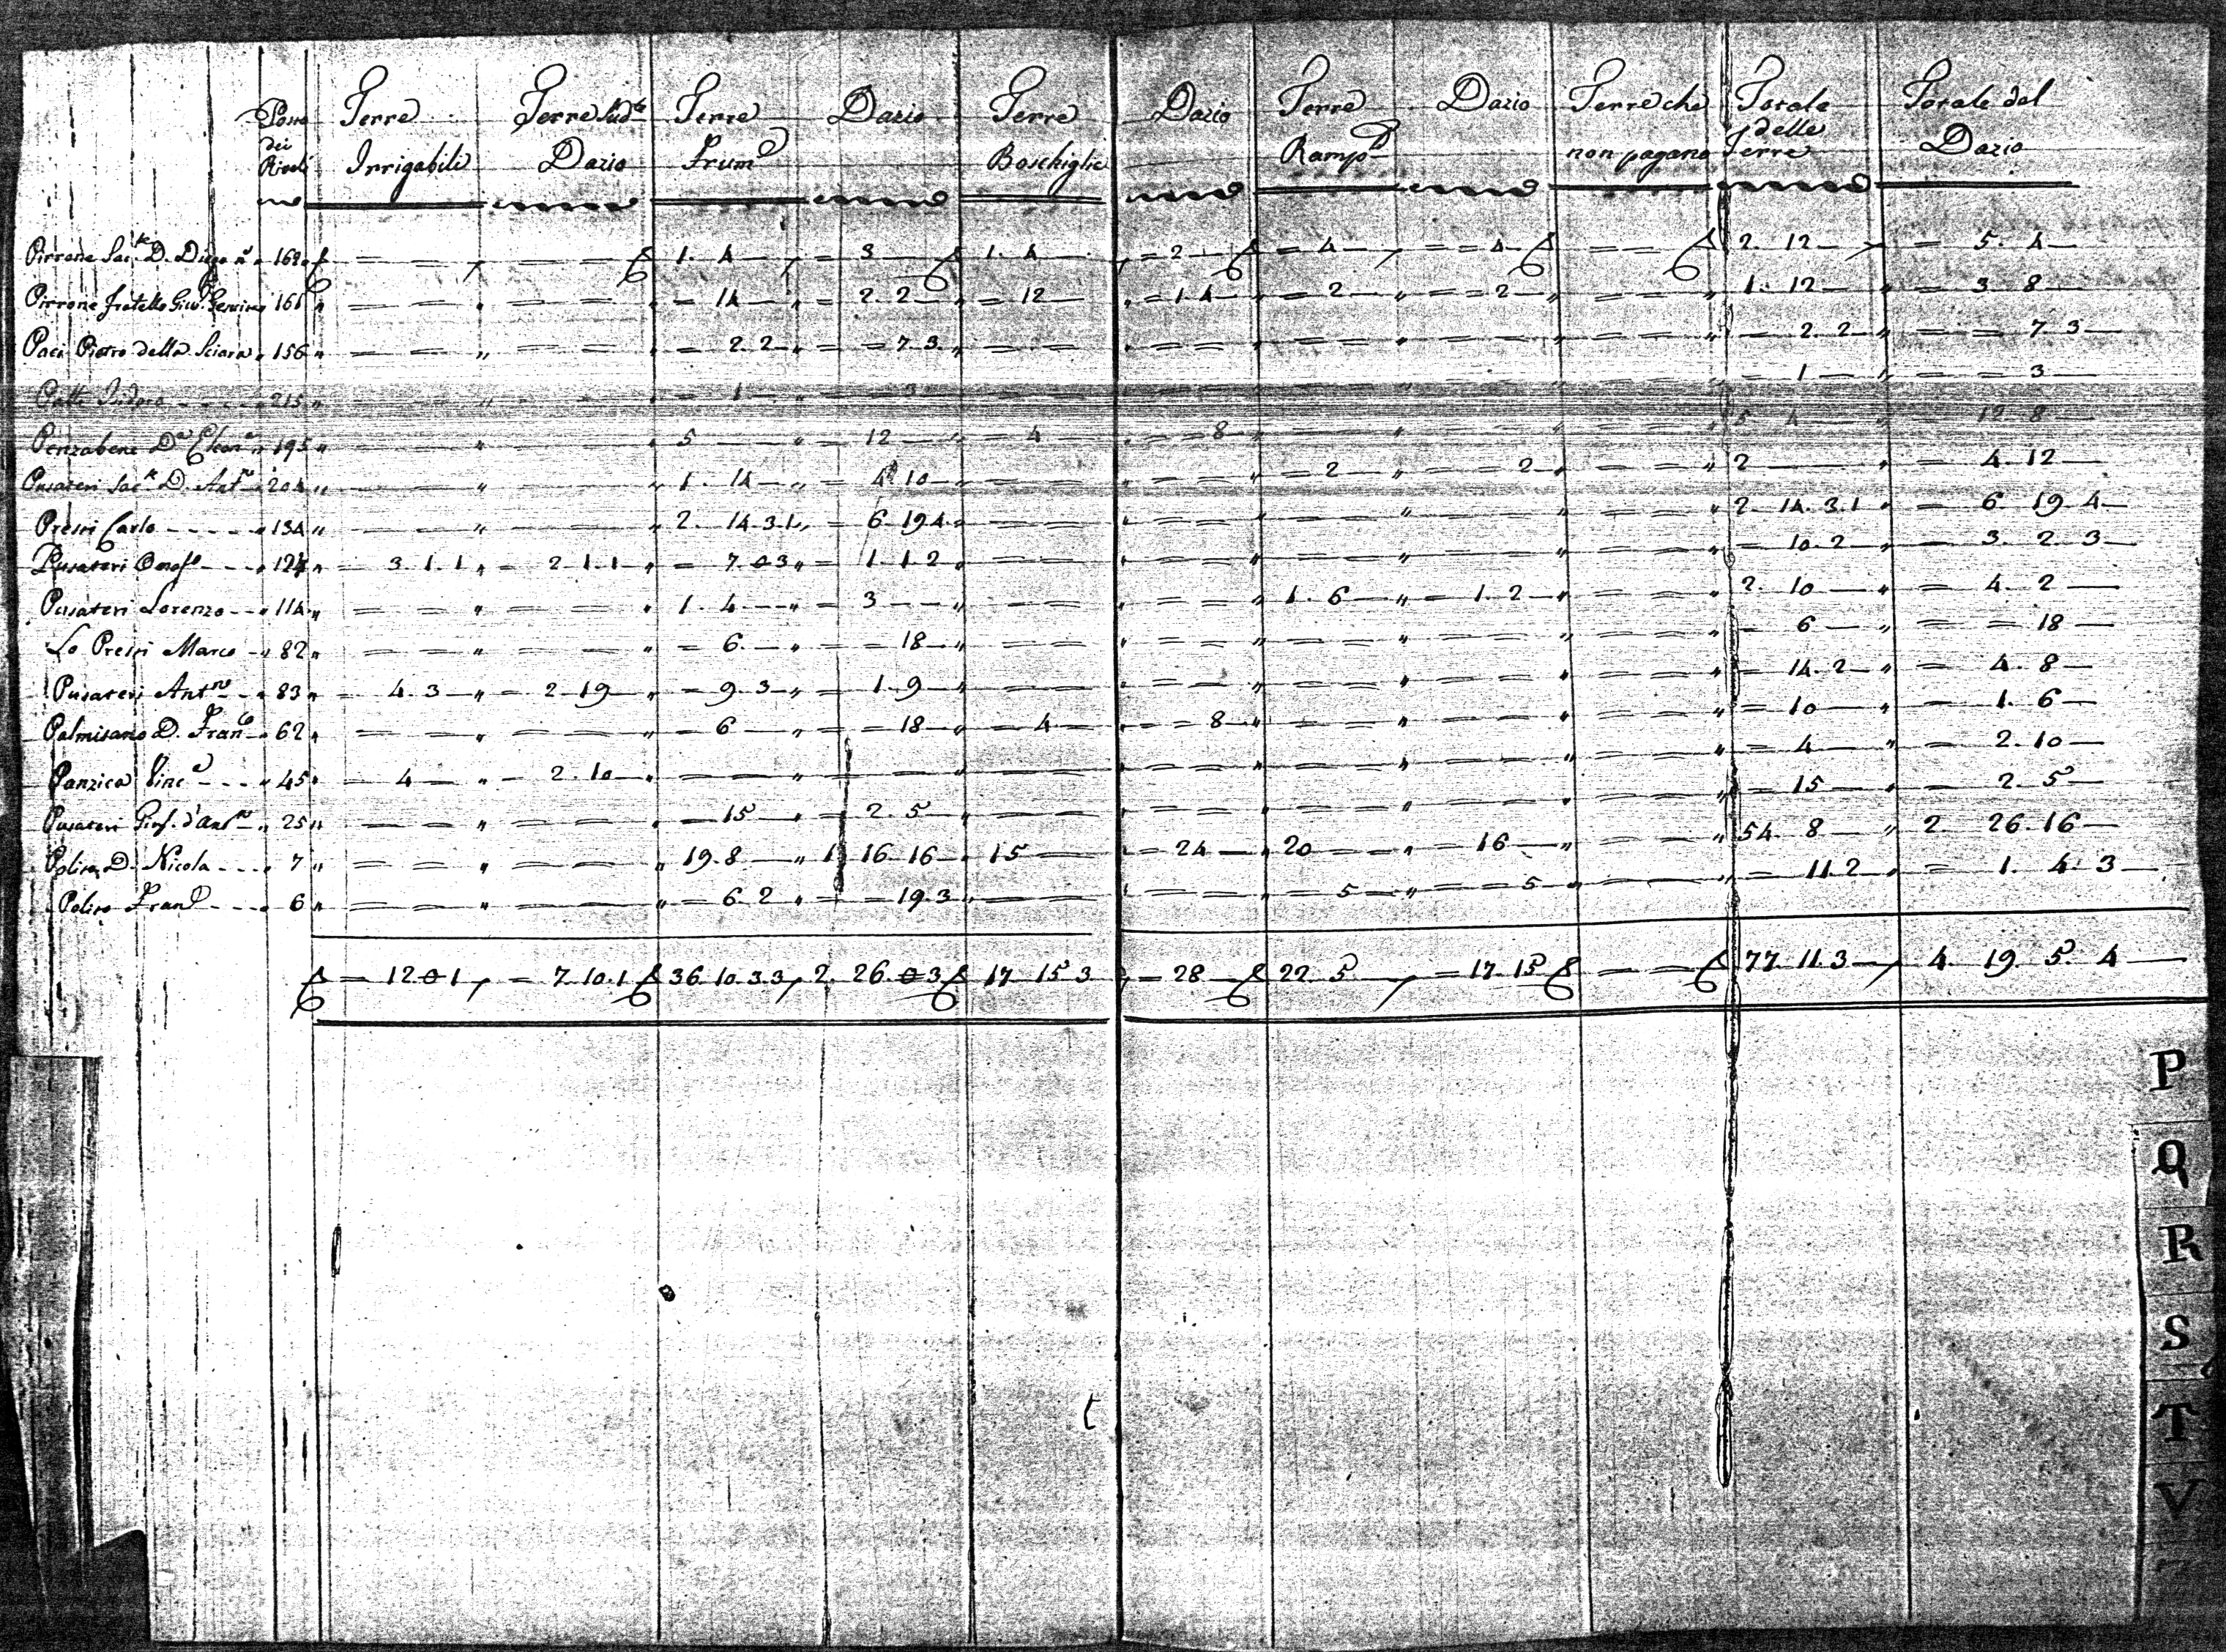 Terre Terre Sud.te Terre Dazio Terre Dazio Terre Dazio Terre che Totale Totale del
dei Riveli Irrigabili Dazio Frum.e Boschiglie Ramp.e non pagano delle Terre Dazio
Pirrone Sac.te D. Diego n. 162 = = = = 1. 4 = 3 1. 4 = 2 = 4 = = 4 = = 2. 12 = 5. 4
Pirrone fratello 161 = = = = = 14 = 2. 2 = 12 = 1. 4 = 2 = = 2 = = 1. 12 = 3 8
Paci Pietro della Sciara 156 = = = = = 2. 2 = = 7 3 = = = = = = = = = = = 2. 2 = = 7 3
Isidoro 215 = 1 = 3 = 1 = = 3
Penzabene D.a 195 5 = 12 = 4 = = 8 5 4 = 12 8
Pusateri Sac.te D. Ant.no 204 1. 14 = 4 10 = = = 2 = = 2 = = 2 = 4. 12
Presti Carlo 134 2. 14. 3. 1 = 6 19 4 = = 2 14. 3. 1 = 6 19 4
Pusateri Onof.o 124 = 3. 1. 1 = 2 1. 1 = 7. 0 3 = 1. 1. 2 = = = 10. 2 = 3. 2 3
Pusateri Lorenzo 114 = = = = 1. 4 = 3 = = = = 1. 6 = 1. 2 = = 2. 10 = 4. 2
Lo Presti Marco 82 = = = = = 6. = = 18 = = = = = = = = = = = 6 = = 18
Pusateri Ant.no 83 = 4. 3 = 2 19 = 9. 3 = 1. 9 = = = = = = = = = = = 14. 2 = 4. 8
Palmisano D. Fran.co 62 = = = = = 6 = = 18 = 4 = = 8 = = = = = = = 10 = 1. 6
Panzica Vinc.a 45 = 4 = 2. 10 = = = = = = = = = = = = = = = 4 = 2. 10
Pusateri Gius. d'Ant.no 25 = = = = = 15 = 2. 5 = = = = = = = = = = = 15 = 2. 5
D. Nicola 7 = = = = 19. 8 1 16 16 15 = 24 20 = 16 = = 54. 8 2 26. 16
Fran.o 6 = = = = = 6 2 = = 19. 3 = = = = = 5 = = 5 = = = 11. 2 = 1. 4. 3
= 12. 0 1 = 7. 10. 1 36. 10. 3. 3 2. 26. 0 3 17 15 3 = 28 22. 5 = 17. 15 = = 77. 11. 3 4. 19. 5. 4
P
Q
R
S
T
V
Z